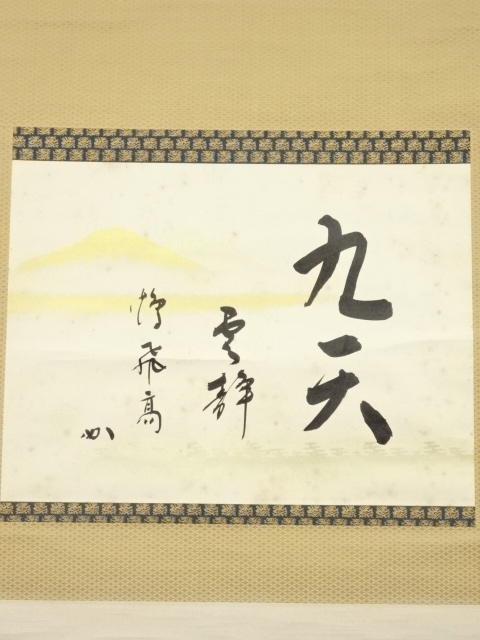 九天
雲静
鶴飛高